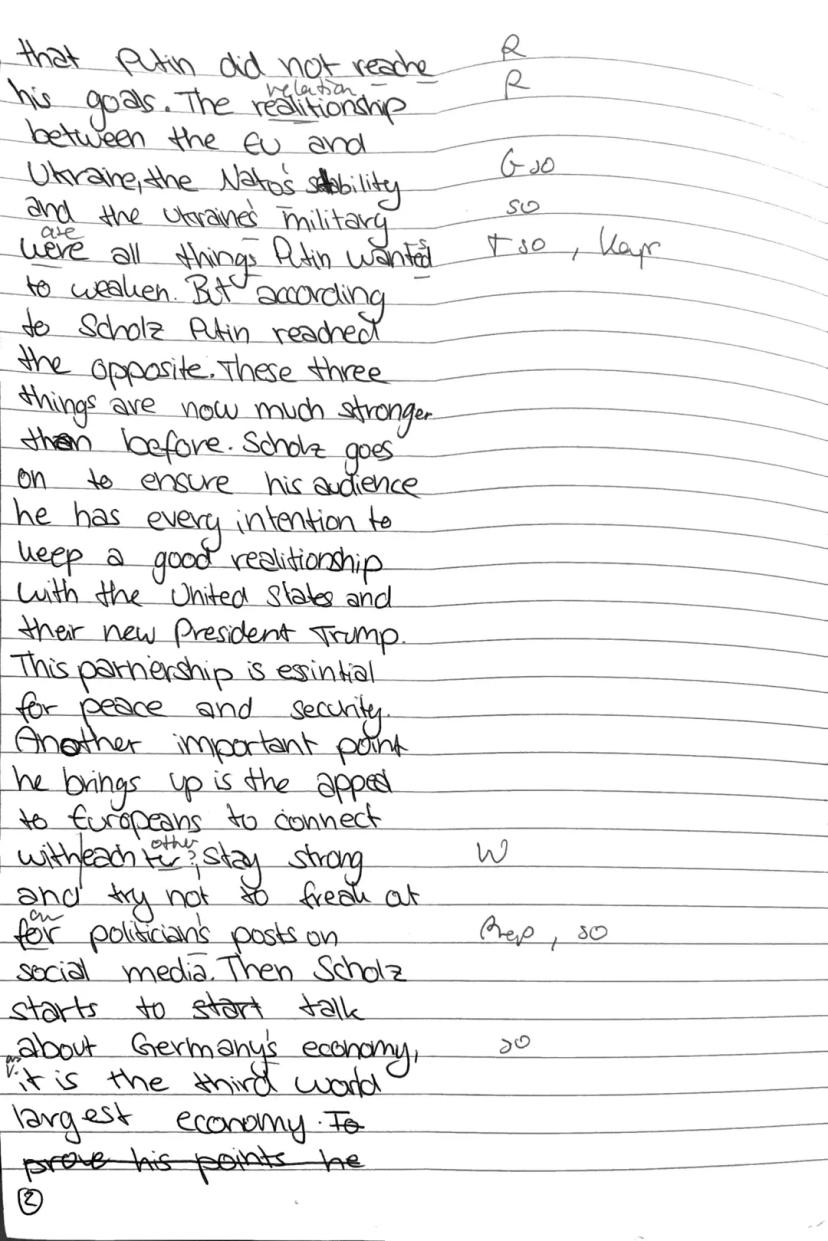 that Putin did not reache R
his goals. The realitionship relation R
between the EU and
Ukraine, the Nato's stability G so
and the Ukraine's military so
were are all things Putin wanted s T so, Kayr
to weaken. But according
to Scholz Putin reached
the opposite. These three
things are now much stronger
then before. Scholz goes
on to ensure his audience
he has every intention to
keep a good realitionship
with the United States and
their new President Trump.
This parnership is essintial
for peace and security.
Another important point
he brings up is the appeal
to Europeans to connect
with each other, stay strong W
and try not to freak at
for on politician's posts on Prep, so
social media. Then Scholz
starts to start talk
about Germany's economy, so
it is the third world
largest economy. To
prove his points he
2